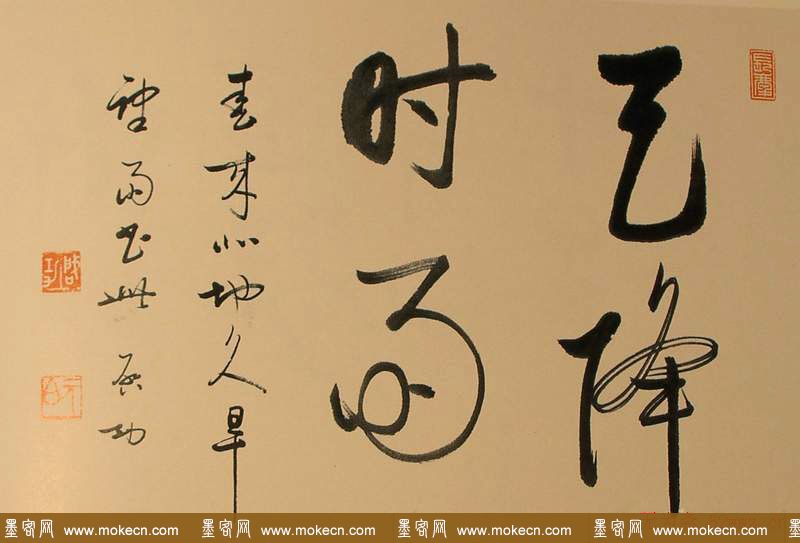 天降
时雨
春来北地久旱
望雨书此 启功
启功
元白
墨客网 www.mokecn.com 墨客网 www.mokecn.com 墨客网 www.mokecn.com 墨客网 www.mokecn.com